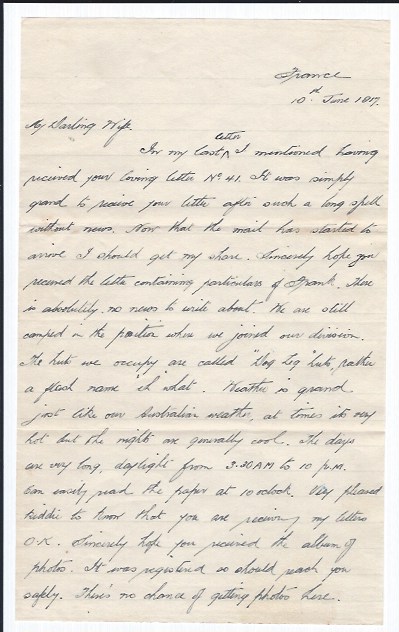 France
10th June 1917.
My Darling Wife.
In my last letter I mentioned having
received your loving letter No 41. It was simply
grand to receive your letter after such a long spell
without news. Now that the mail has started to
arrive I should get my share. Sincerely hope you
received the letter containing particulars of Frank. There
is absolutely no news to write about. We are still
camped in the position where we joined our division.
The huts we occupy are called "Dog Leg" huts, rather
a flash name "eh" what. Weather is grand
just like our Australian weather, at times its very
hot but the nights are generally cool. The days
are very long, daylight from 3.30AM to 10 p.m.
Can easily read the paper at 10 oclock. Very pleased
Kiddie to know that you are receiving my letters
O.K. Sincerely hope you received the album of
photos. It was registered so should reach you
safely. There's no chance of getting photos here.